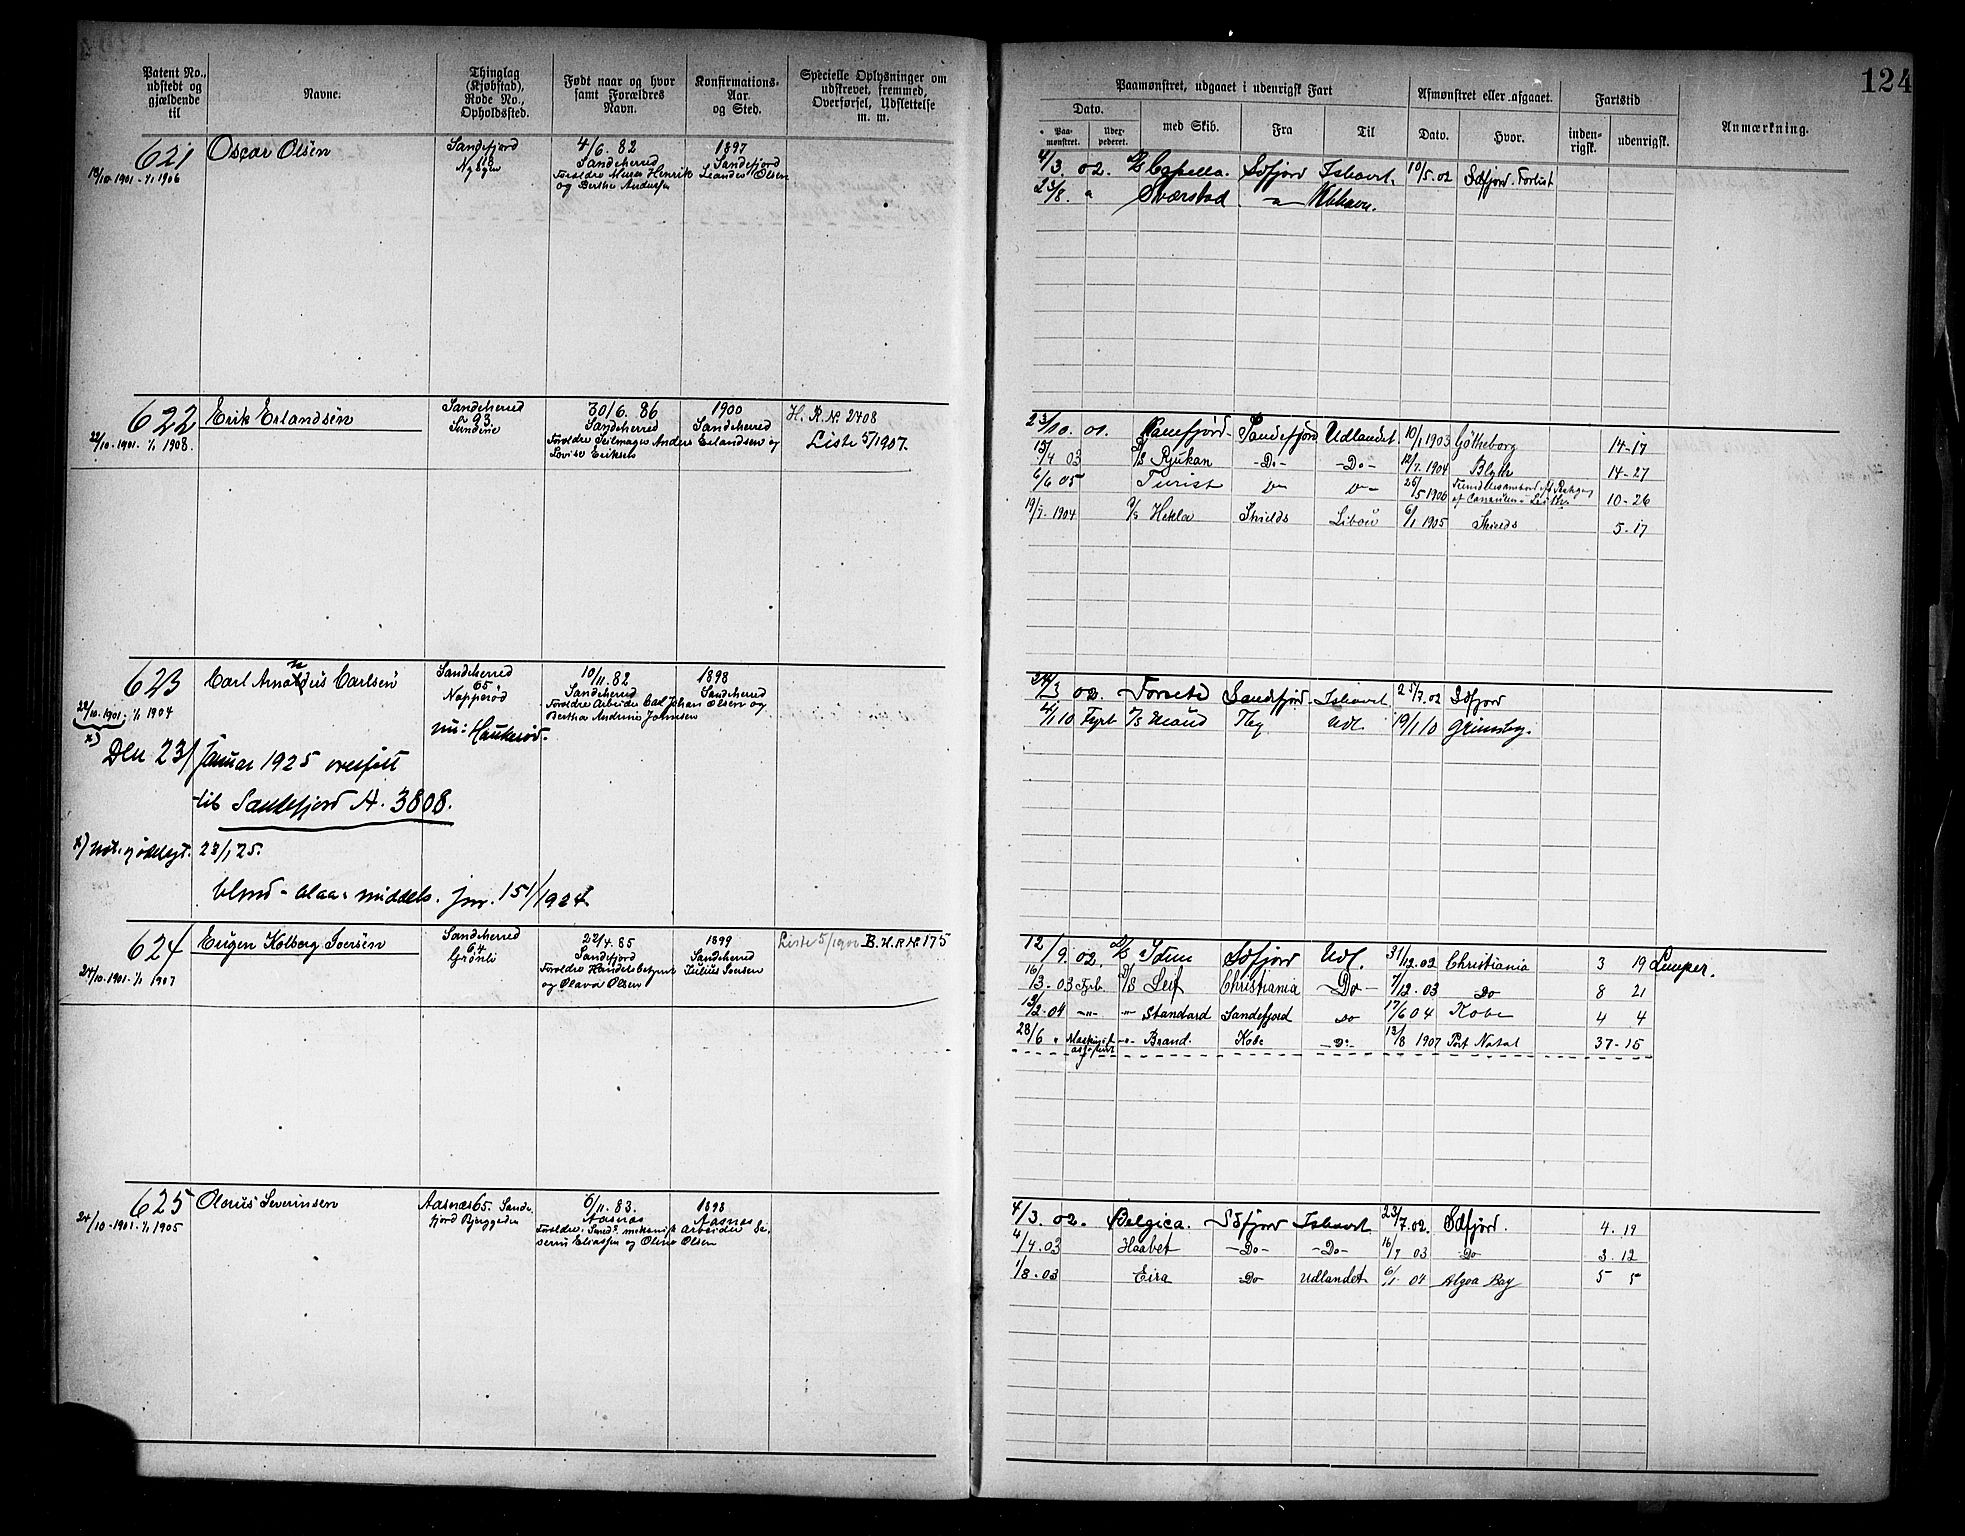 124
Patent No., udstedt og gjældende til
Navne.
Thinglag (Kjøbstad), Rode No., Opholdssted.
Født naar og hvor samt Forældres Navn.
Konfirmations-Aar. og Sted.
Specielle Oplysninger om udskrevet, fremmed, Overførsel, Udslettelse m. m.
Paamønstret, udgaaet i udenrigsk Fart
Afmønstret eller afgaaet.
Fartstid
Anmærkning.
Dato.
Paa-mønstret.
Udex-pederet.
med Skib.
Fra
Til
Dato.
Hvor.
inden-rigsk.
udenrigsk.
621 Oscar Olsen
Sandefjord
Nybyen
4/6. 82
Sandeherred
Forældre Murer Henrik
og Berthe Andersen
1897
Sandefjord
Leander Olsen
4/3. 02. Capella. Sdfjord Ishavet. 10/5. 02 Sdfjord. Forlist
Sværstad
622 Erik Erlandsen
22/10-1901- 1/1 1908.
Sandeherred
93
30/6. 86
Sandeherred
Forældre Seilmager Anders Erlandsen og
Lovise Eriksen
1900
Sandeherred
H. R. No. 2408
Liste 5/1907.
23/10. 01. Ranefjord Sandefjord Udlandet 10/1 1903 Götheborg 14-17
03 D/S Rjukan -Do- -Do- 12/7. 1904 Blyth 14-27
6/6 05 Turist 25/5 1906 10-26
19/7. 1904 Hekla Shields Libau 6/1 1905 Shields 5-17
623 Carl Arnandus Carlsen
22/10-1901- 1/1 1904
x)
Sandeherred
65
Napperød
nu: Haukerød.
10/11. 82
Sandeherred
Forældre Arbeider Carl Johan Olsen og
Bertha Andrine Johnsen
1898
Sandeherred
Den 23/ Januar 1925 overført
til Sandefjord A. 3808.
x) 23/1 25.
blond - blaa - middels. jnr. 151/1924
24/3 02. Forsete Sandefjord Ishavet 25/7. 02 Sdfjord
4/1 10 Fyrb Maud Tbg Udl. 19/1 10 Grimsby.
624 Eugen Kolberg Iversen
24/10-1901- 1/1 1907
Sandeherred
64
Grønli
22/4. 85
Sandefjord
og Olava Olsen
1899
Sandeherred
Julius Iversen
Liste 5/190 B. H. R No. 175
12/9. 02. Idun Sdfjord Udl. 31/12. 02 Christiania 3 19 Lemper.
16/3. 03 Fyrb. D/S Leif Christiania -Do- 7/12. 03 Do 8 21
04 -"- -"- Standard Sandefjord Do 17/6 04 Kobe 4 4
28/6 " -"- Brand. Kobe -Do- 12/8 1907 Port Natal 37-15
625 Olaus Severinsen
24/10-1901- 1/1 1905
Aasnæs 65. Sande-
fjord Bjerggaden
6/11. 83.
Aasnæs
Olsen
1898
Aasnæs
4/3. 02. Belgica. Sdfjord Ishavet 23/7. 02. Sdfjord. 4. 19
4/4. 03 Haabet -Do- -Do- 16/9 03 Do 3. 12
1/8. 03 Eira Do Udlandet 6/1 04 Algoa Bay 5 5